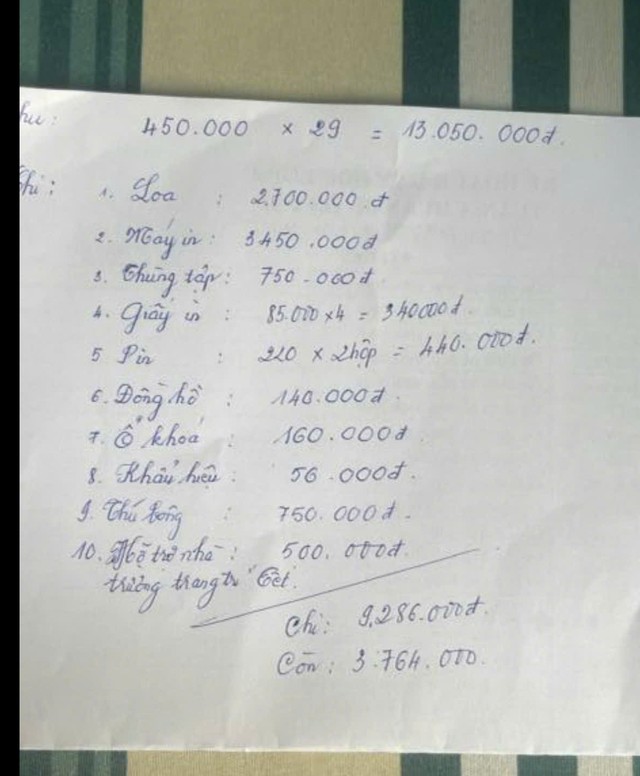 Thu: 450.000 × 29 = 13.050.000đ.
Chi: 1. Loa : 2.700.000.đ
2. Máy in : 3450.000đ
3. Thùng tập : 750.000đ
4. Giấy in : 85.000 × 4 = 340000đ.
5 Pin : 220 × 2hộp = 440.000đ.
6. Đồng hồ : 140.000đ.
7. Ổ khoá : 160.000đ.
8. Khẩu hiệu : 56.000đ.
9. Thú bông : 750.000đ.
10. Hỗ trợ nhà : 500.000đ.
trường trang trí Tết.
Chi : 9,286.000đ.
Còn : 3.764.000.